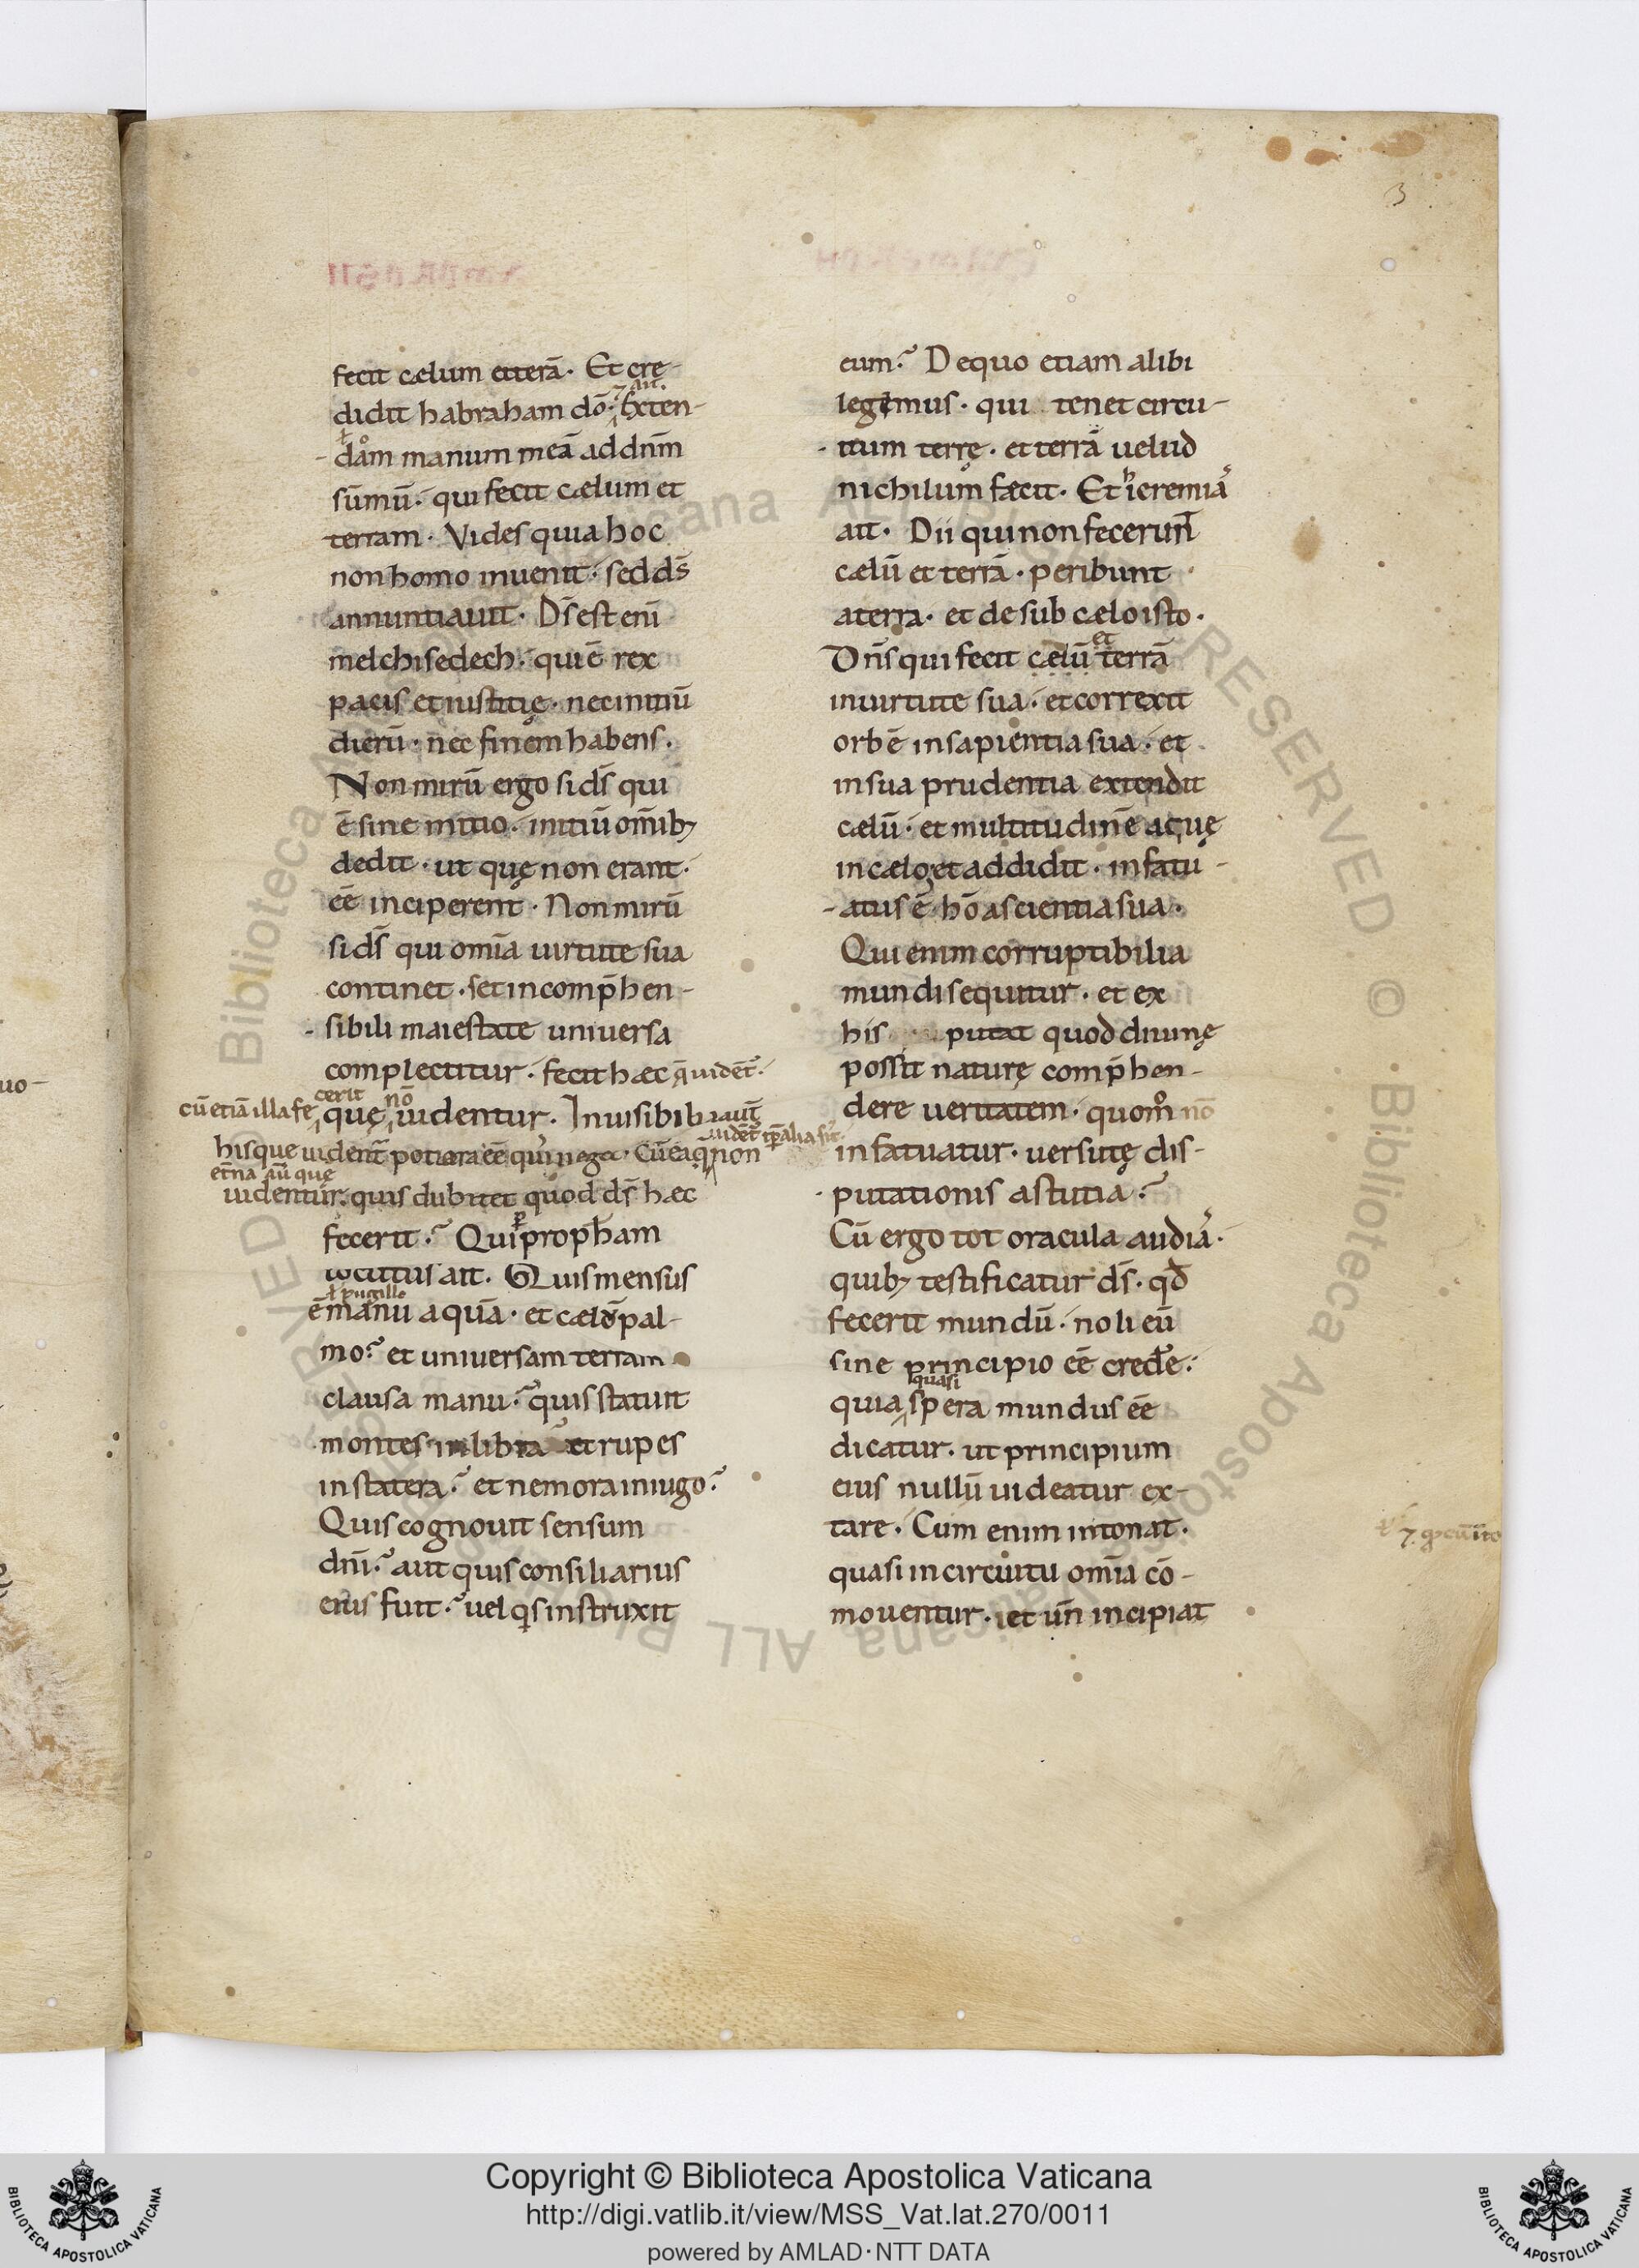 3
fecit cælum et terrā· Et cre-
⁊ ait.
didit habraham dō·̓ Exten-
ł o
-dam manum meā ad dnm̄
sūmū·̓ qui fecit cælum et
terram· Vides quia hoc
non homo inuenit·̓ sed ds̄
annuntiauit· Ds̄ est eni̅
melchisedech·̓ qui ē rex
pacis et iustitię· nec initiū
dierū· nec finem habens.
Non mirū ergo si ds̄ qui
ē sine initio·̓ initiū om̄ib;
dedit· ut quę non erant·̓
eē inciperent· Non mirū
si ds̄ qui om̄ia uirtute sua
continet· set incomp̄hen-
-sibili maiestate uniuersa
complectitur·̓ fecit hæc q̄ uident̄·̓
cerit nō
cū etiā illa fe quę uidentur· Inuisibilia aut̄
uident̄ tp̄alia
hisque uident̄ potiora eē quis neget· Cū ea q̄ non
et̄na aū que
uidentur·̓ quis dubitet quod ds̄ hæc
fecerit·̓ Qui ꝑ proph̄am
locutus ait· Quis mensus
ł pugillo
ē manu aquā· et cælū pal-
mo·̓ et uniuersam terram
clausa manu·̓ quis statuit
montes in libra et rupes
in statera·̓ et nemora in iugo·̓
Quis cognouit sensum
dni̅·̓ aut quis consiliarius
eius fuit·̓ uel qs instruxit
eum·̓ De quo etiam alibi
legimus· qui tenet circu-
-itum terrę· et terrā uelud
nichilum fæcit· Et ieremiaˢ
ait· Dii qui non fecerunt
cælū et terrā· peribunt
a terra· et de sub cælo isto·
et
Dn̄s qui fecit cælū terrā
in uirtute sua·̓ et correxit
orbē in sapientia sua·̓ et
in sua prudentia extendit
cælū·̓ et multitudinē aquę
in cælo et addidit· infatu-
-atus ē hō a scientia sua·
Qui enim corruptibilia
mundi sequitur· et ex
his putat quod diuinę
possit naturę comp̄hen-
dere ueritatem· quom̊ nō
infatuatur· uersutę dis-
-putationis astutia·̓
Cū ergo tot oracula audiaˢ·
quib; testificatur ds̄· qd̄
fecerit mundū·̓ noli eū
sine principio eē credere·̓
quasi
quia spera mundus eē
dicatur· ut principium
eius nullū uideatur ex-
tare· Cum enim intonat·
quasi in circuitu om̄ia cō-
mouentur·̓ et un̄ incipiat
Copyright © Biblioteca Apostolica Vaticana
http://digi.vatlib.it/view/MSS_Vat.lat.270/0011
powered by AMLAD·NTT DATA
BIBLIOTECA APOSTOLICA VATICANA
BIBLIOTECA APOSTOLICA VATICANA